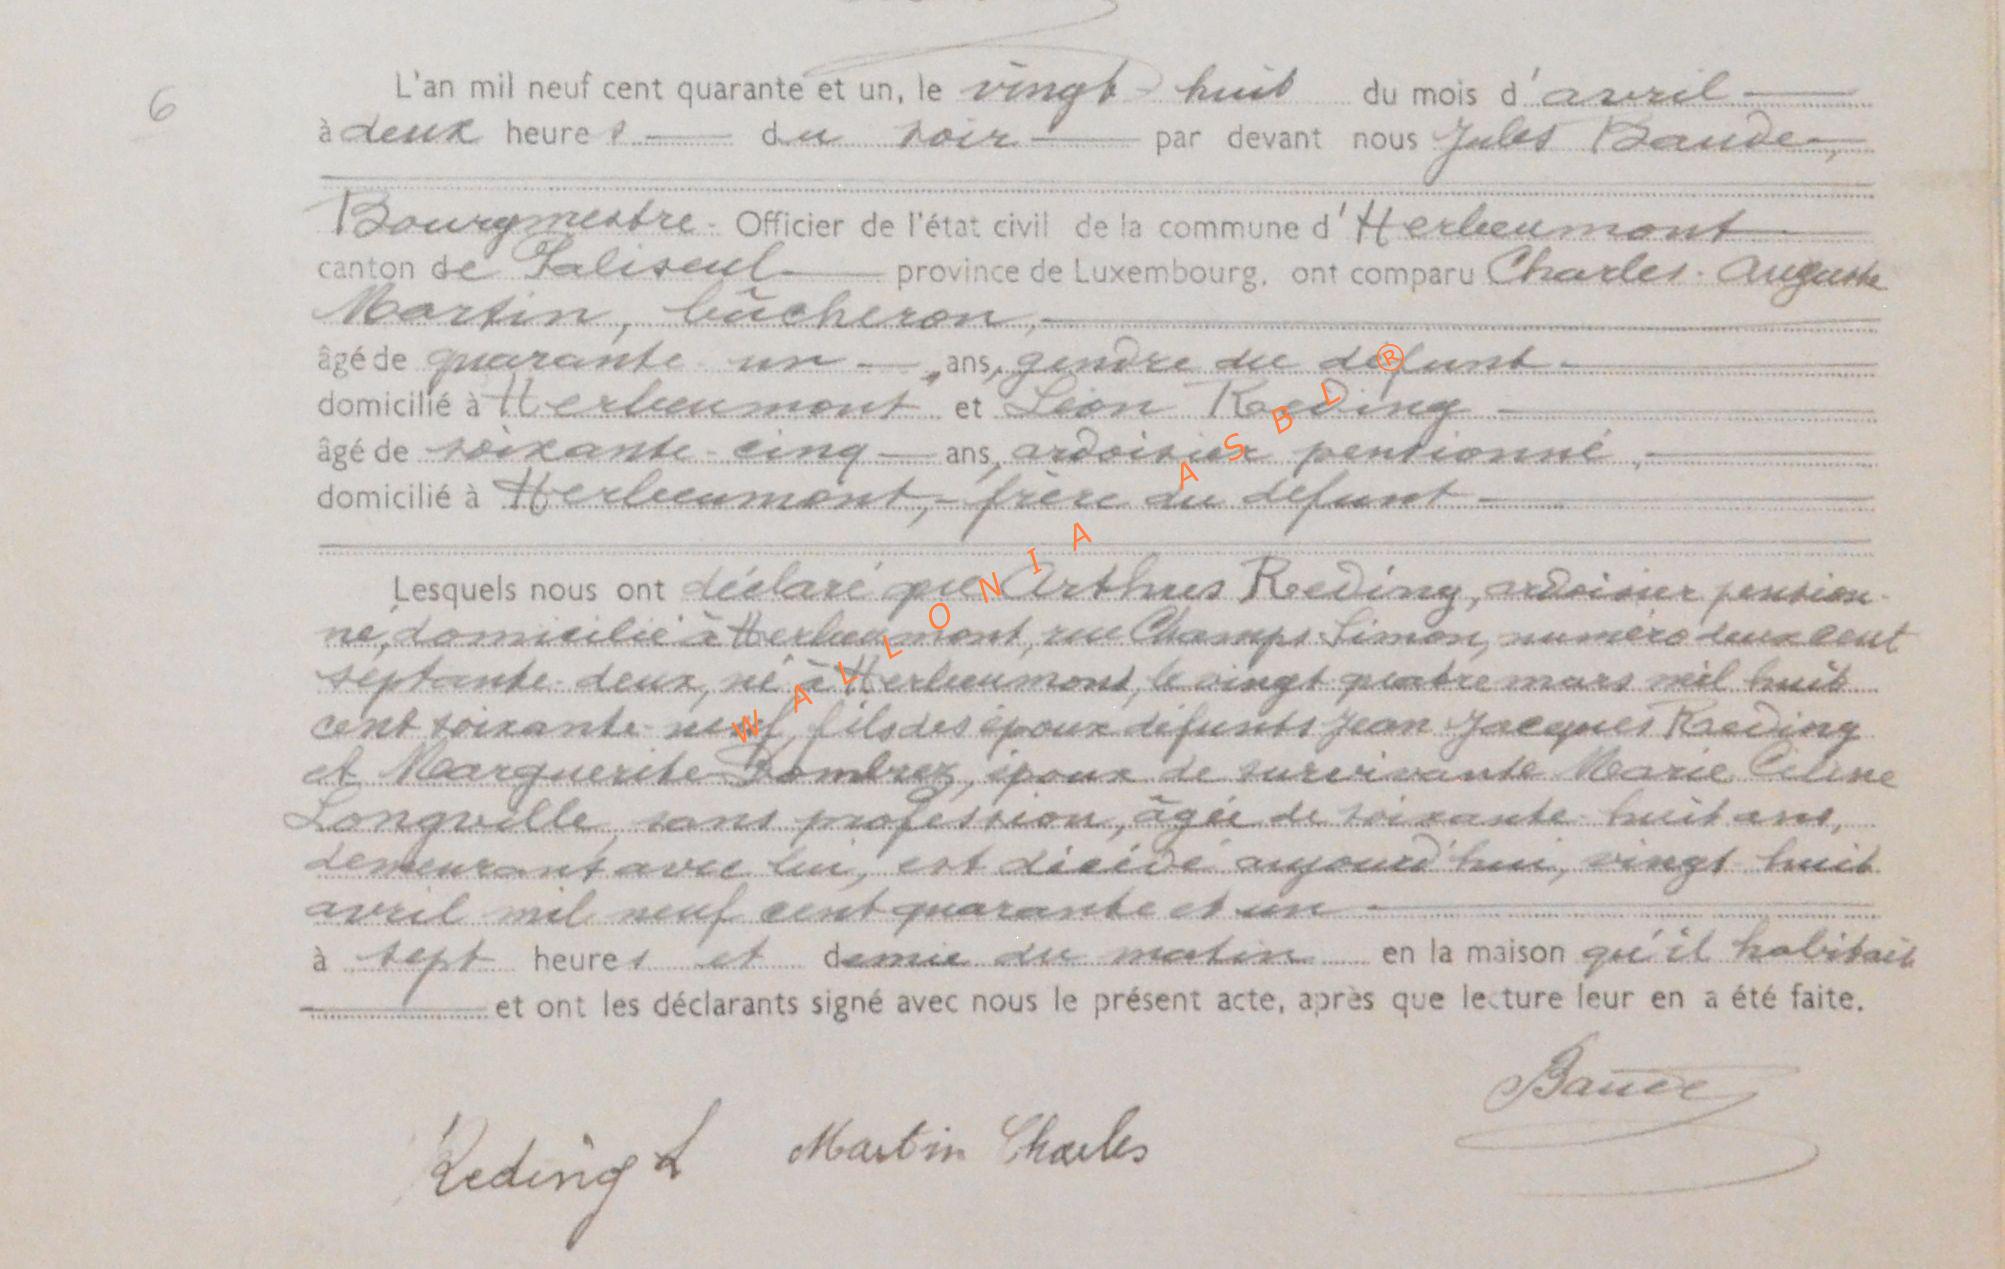 6
L'an mil neuf cent quarante et un, le vingt-huit du mois d'avril
à deux heures du soir par devant nous Jules Baude,
Bourgmestre - Officier de l'état civil de la commune d'Herbeumont
canton de Paliseul province de Luxembourg, ont comparu Charles-Auguste
Martin, bûcheron,
âgé de quarante-un ans, gendre du défunt
domicilié à Herbeumont et Léon Reding
âgé de soixante-cinq ans, ardoisier pensionné,
domicilié à Herbeumont, frère du défunt
Lesquels nous ont déclaré que Arthur Reding, ardoisier pension-
né, domicilié à Herbeumont, rue Champs-Simon, numéro deux cent
septante-deux, né à Herbeumont, le vingt quatre mars mil huit
cent soixante-neuf, fils des époux défunts Jean Jacques Reding
et Marguerite Dombrez, époux de survivante Marie Céline
Longville, sans profession, âgée de soixante-huit ans,
demeurant avec lui, est décédé aujourd'hui, vingt-huit
avril mil neuf cent quarante et un
à sept heures et demie du matin en la maison qu'il habitait
et ont les déclarants signé avec nous le présent acte, après que lecture leur en a été faite.
Baude
Reding L Martin Charles
WALLONIA ASBL ®